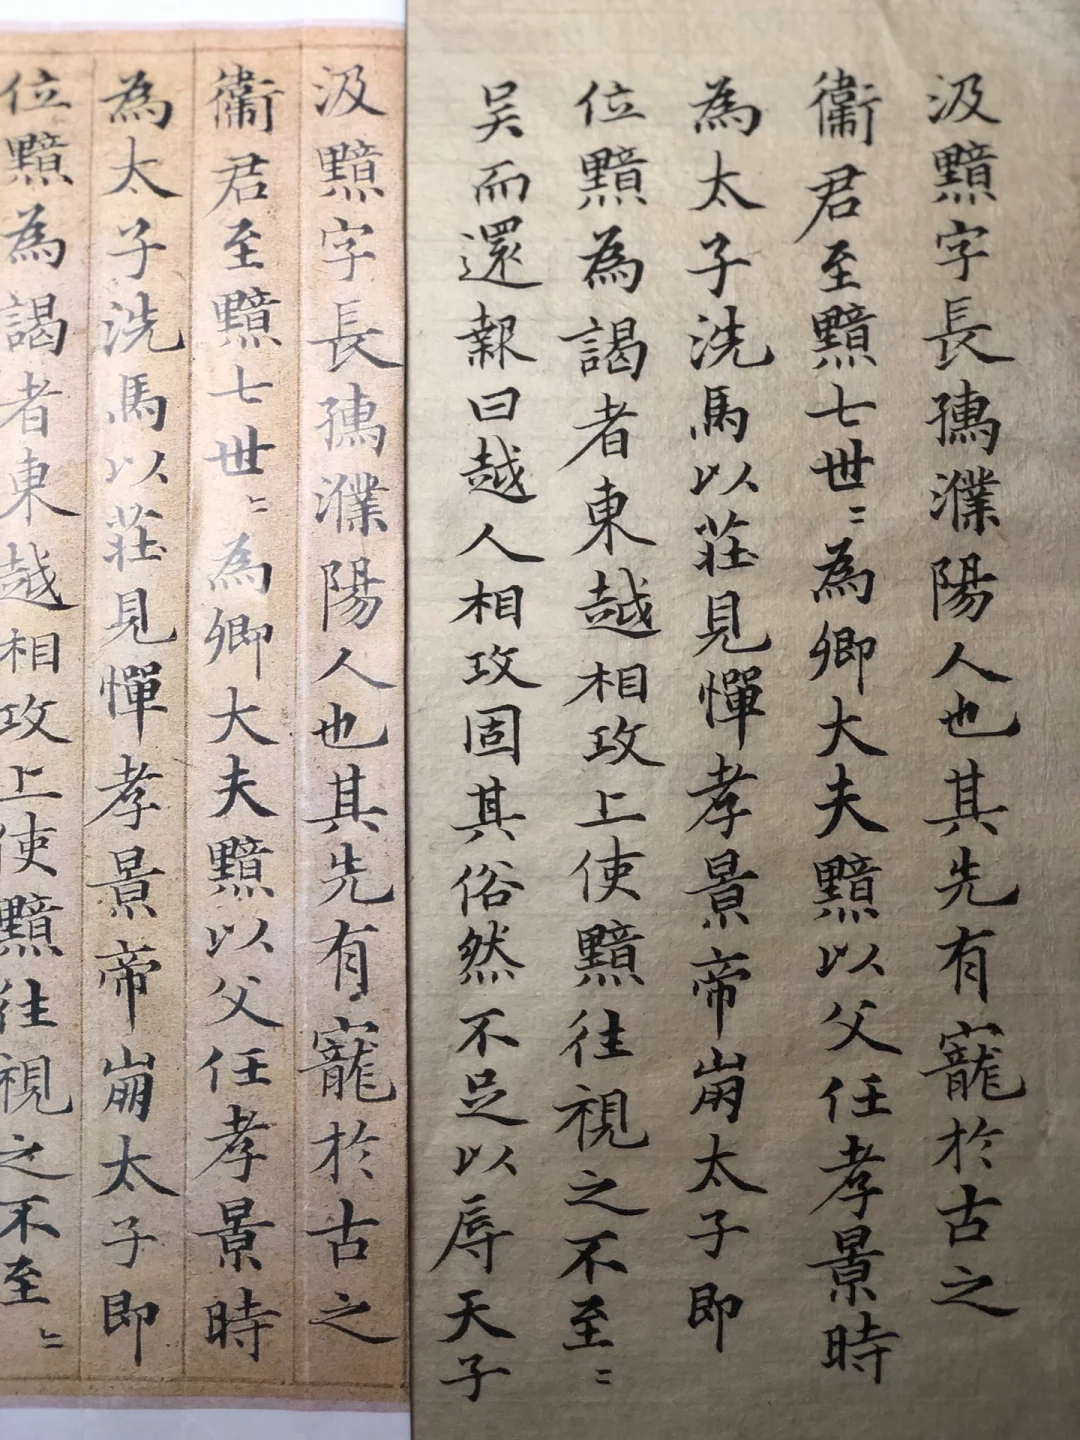 汲黯字長孺濮陽人也其先有寵於古之
衞君至黯七世〻為卿大夫黯以父任孝景時
為太子洗馬以莊見憚孝景帝崩太子即
位黯為謁者東越相攻上使黯往視之不至〻
吴而還報曰越人相攻固其俗然不足以辱天子
汲黯字長孺濮陽人也其先有寵於古之
衞君至黯七世〻為卿大夫黯以父任孝景時
為太子洗馬以莊見憚孝景帝崩太子即
位黯為謁者東越相攻上使黯往視之不至〻